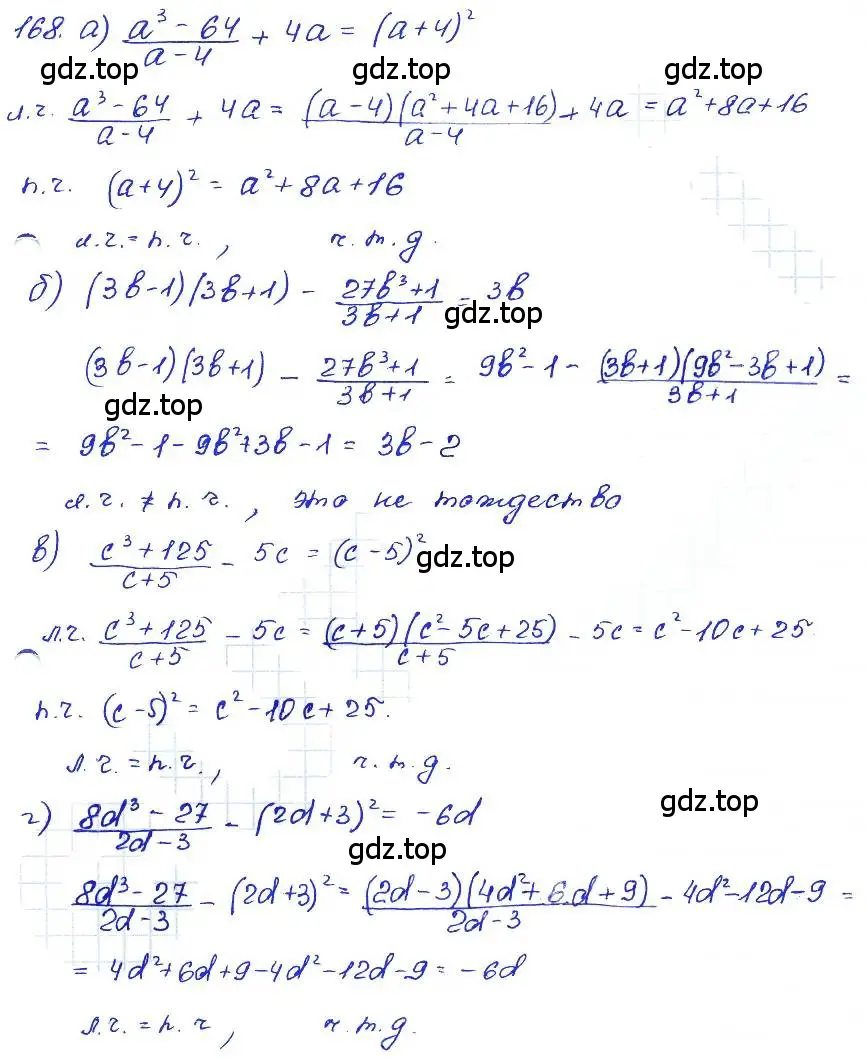 168. а) (a³ - 64)/(a - 4) + 4a = (a+4)²
gdz.top gdz.top gdz.top
л.ч. (a³ - 64)/(a - 4) + 4a = (a - 4)(a² + 4a + 16)/(a - 4) + 4a = a² + 8a + 16
п.ч. (a+4)² = a² + 8a + 16
л.ч. = п.ч., ч.т.д.
б) (3b-1)(3b+1) - (27b³+1)/(3b+1) = 3b
gdz.top
(3b-1)(3b+1) - (27b³+1)/(3b+1) = 9b² - 1 - (3b+1)(9b² - 3b + 1)/(3b+1) =
gdz.top
= 9b² - 1 - 9b² + 3b - 1 = 3b - 2
л.ч. ≠ п.ч., это не тождество
в) (c³ + 125)/(c+5) - 5c = (c - 5)²
gdz.top
л.ч. (c³ + 125)/(c+5) - 5c = (c+5)(c² - 5c + 25)/(c+5) - 5c = c² - 10c + 25
п.ч. (c - 5)² = c² - 10c + 25.
л.ч. = п.ч., ч.т.д.
г) (8d³ - 27)/(2d - 3) - (2d+3)² = -6d
gdz.top gdz.top
(8d³ - 27)/(2d - 3) - (2d+3)² = (2d - 3)(4d² + 6d + 9)/(2d - 3) - 4d² - 12d - 9 =
= 4d² + 6d + 9 - 4d² - 12d - 9 = -6d
л.ч. = п.ч, ч.т.д.